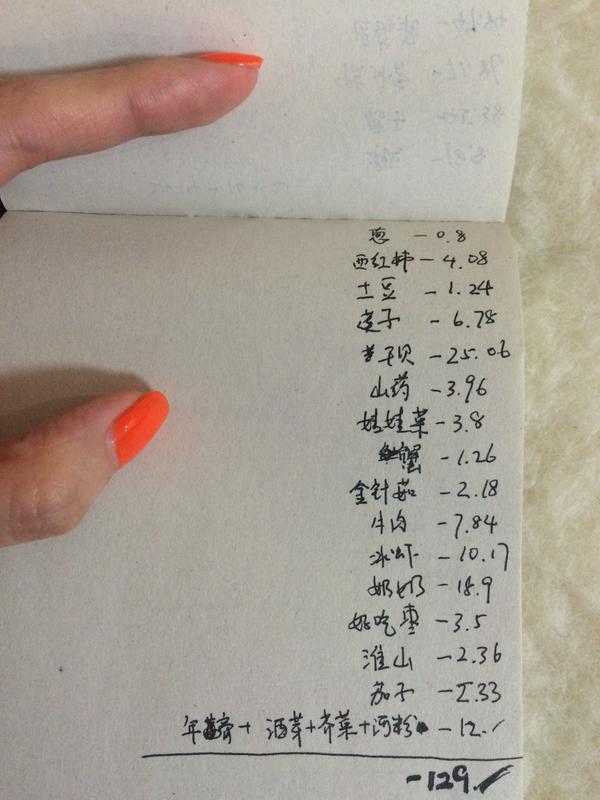 葱 -0.8
西红柿-4.08
土豆 -1.24
莲子 -6.78
干贝 -25.06
山药 -3.96
娃娃菜-3.8
蟹 -1.26
金针菇 -2.18
牛肉 -7.84
冰虾 -10.17
奶奶 -18.9
好吃枣 -3.5
淮山 -2.36
茄子
+ 芥菜+河粉 -12.
-129.